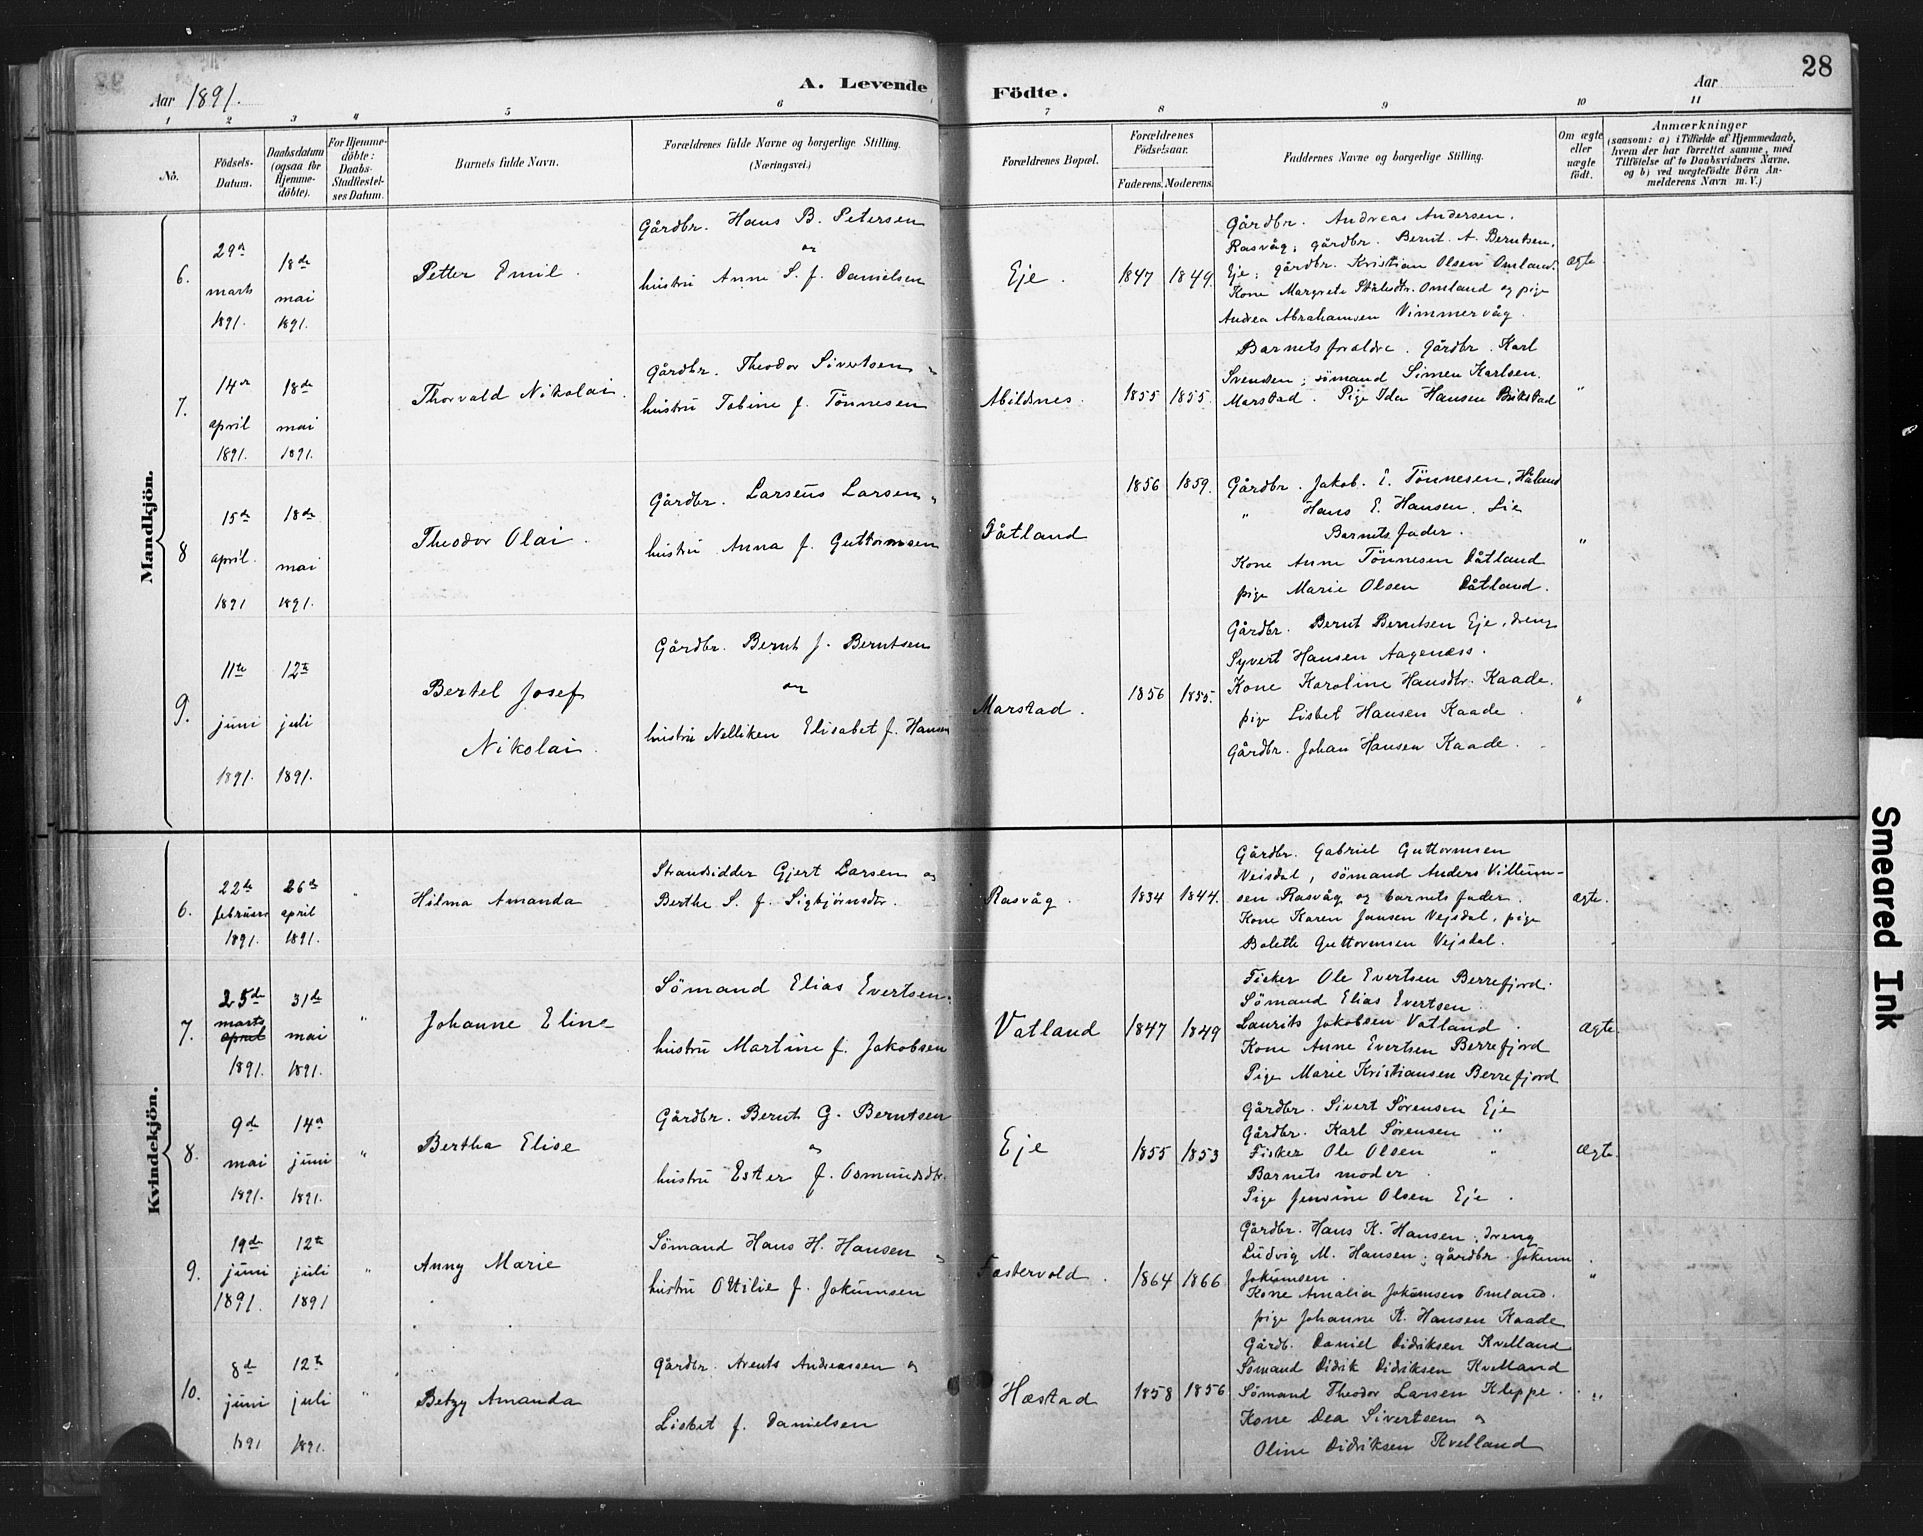 28
Aar 1891.
A. Levende Födte.
Aar
1 2 3 4 5 6 7 8 9 10 11
No.
Födsels-Datum.
Daabsdatum (ogsaa för Hjemme-döbte).
For Hjemme-döbte: Daabs-Stadfæstel-ses Datum.
Barnets fulde Navn.
Forældrenes fulde Navne og borgerlige Stilling. (Næringsvei.)
Forældrenes Bopæl.
Forældrenes Födselsaar.
Faderens. Moderens.
Faddernes Navne og borgerlige Stilling.
Om ægte eller uægte födt.
Anmærkninger
(saasom: a) i Tilfælde af Hjemmedaab,
hvem der har forrettet samme, med
Tilföielse af to Daabsvidners Navne,
og b) ved uægtefödte Börn An-
melderens Navn m. V.)
Mandkjön.
6.
29de marts 1891.
18de mai 1891.
Petter Emil.
Gårdbr. Hans B. Petersen
og
hustru Anne S. f. Danielsen
Eje.
1847 1849.
Gårdbr. Andreas Andersen,
Rasvåg; gårdbr. Bernt. A. Berntsen,
Eje; gårdbr. Kristian Olsen Omland.
Kone Margrete Omland og pige
Andrea Abrahamsen Vimmervåg.
ægte
7.
14de april 1891.
18de mai 1891.
Thorvald Nikolai.
Gårdbr. Theodor Sivertsen
hustru Tobine f. Tönnesen
Abildsnes.
1855 1855.
Barnets forældre. Gårdbr. Karl
Svendsen; sömand Simen Karlsen.
Marstad. Pige Ida Hansen Brikstad
"
8
15de april. 1891
18de mai 1891.
Theodor Olai.
Gårdbr. Larseus Larsen
hustru Anna f. Guttormsen
Dåtland
1856 1859.
Gårdbr. Jakob. T. Tönnesen, Håland
" Hans E. Hansen. Lie
Barnets fader.
Kone Anne Tönnesen Dåtland
pige Marie Olsen Dåtland.
"
9.
11te juni 1891.
12te juli 1891.
Bertel Josef
Nikolai.
Gårdbr. Bernt J. Berntsen
og
hustru Nelliken Elisabet f. Hansen
Marstad.
1856 1855.
Gårdbr. Bernt Berntsen Eje, dreng
Syvert Hansen Aagenæs.
Kone Karoline Hansdtr. Kaade.
pige Lisbet Hansen Kaade.
Gårdbr. Johan Hansen Kaade.
"
Kvindekjön.
6.
22de februar 1891.
26de april 1891.
"
Hilma Amanda
Strandsidder Gjert Larsen og
Berthe S. f. Sigbjörnsdtr.
Rasvåg.
1834 1844.
Gårdbr. Gabriel Guttormsen
Veisdal, sömand Anders Villum-
sen Rasvåg og barnets fader.
Kone Karen Jansen Vejsdal, pige
Bolette Guttormsen Vejsdal.
ægte.
7.
25de marts april 1891.
31de mai 1891.
"
Johanne Eline
Sömand Elias Evertsen
hustru Martine f. Jakobsen
Vatland
1847 1849
Fisker Ole Evertsen Berrefjord.
Sömand Elias Evertsen
Laurits Jakobsen Vatland.
Kone Anne Evertsen Berrefjord
Pige Marie Kristiansen Berrefjord
Ægte.
8.
9de mai 1891.
14de juni 1891.
"
Bertha Elise
Gårdbr. Bernt G. Berntsen
og
hustru Ester f. Osmundsdtr.
Eje
1855 1853
Gårdbr. Sivert Sörensen Eje
Gårdbr. Karl Sörensen "
Fisker Ole Olsen "
Barnets moder.
Pige Jensine Olsen Eje.
Ægte.
9.
19de juni 1891.
12te juli 1891
"
Anny Marie
Sömand Hans H. Hansen
hustru Ottilie f. Jokumsen
Fæstervold.
1864 1866
Gårdbr. Hans K. Hansen; dreng
Ludvig M. Hansen; gårdbr. Jokum
Jokumsen.
Kone Amalia Jokumsen Omland.
pige Johanne K. Hansen Kaade
"
10.
8de juni 1891
12te juli 1891.
"
Betzy Amanda
Gårdbr. Arents Andreassen og
Lisbet f. Danielsen
Hæstad
1858 1856
Gårdb. Daniel Didriksen Kvelland
Sömand Didrik Didriksen Kvelland
Sömand Theodor Larsen Kleppe.
Kone Dea Sivertsen og
Oline Didriksen Kvelland
"
Smeared Ink